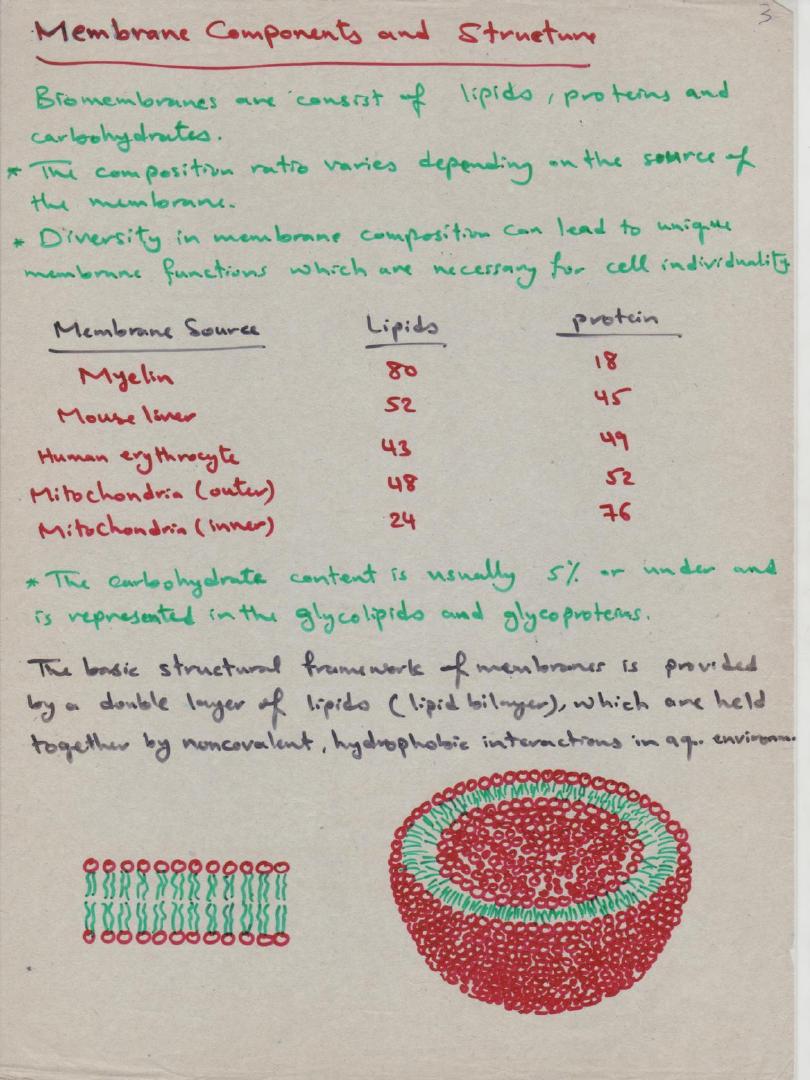 3
Membrane Components and Structure
Biomembranes are consist of lipids, proteins and
carbohydrates.
* The composition ratio varies depending on the source of
the membrane.
* Diversity in membrane composition can lead to unique
membrane functions which are necessary for cell individuality.
Membrane Source Lipids protein
Myelin 80 18
Mouse liver 52 45
Human erythrocyte 43 49
Mitochondria (outer) 48 52
Mitochondria (inner) 24 76
* The carbohydrate content is usually 5% or under and
is represented in the glycolipids and glycoproteins.
The basic structural framework of membranes is provided
by a double layer of lipids (lipid bilayer), which are held
together by noncovalent, hydrophobic interactions in aq. environm.